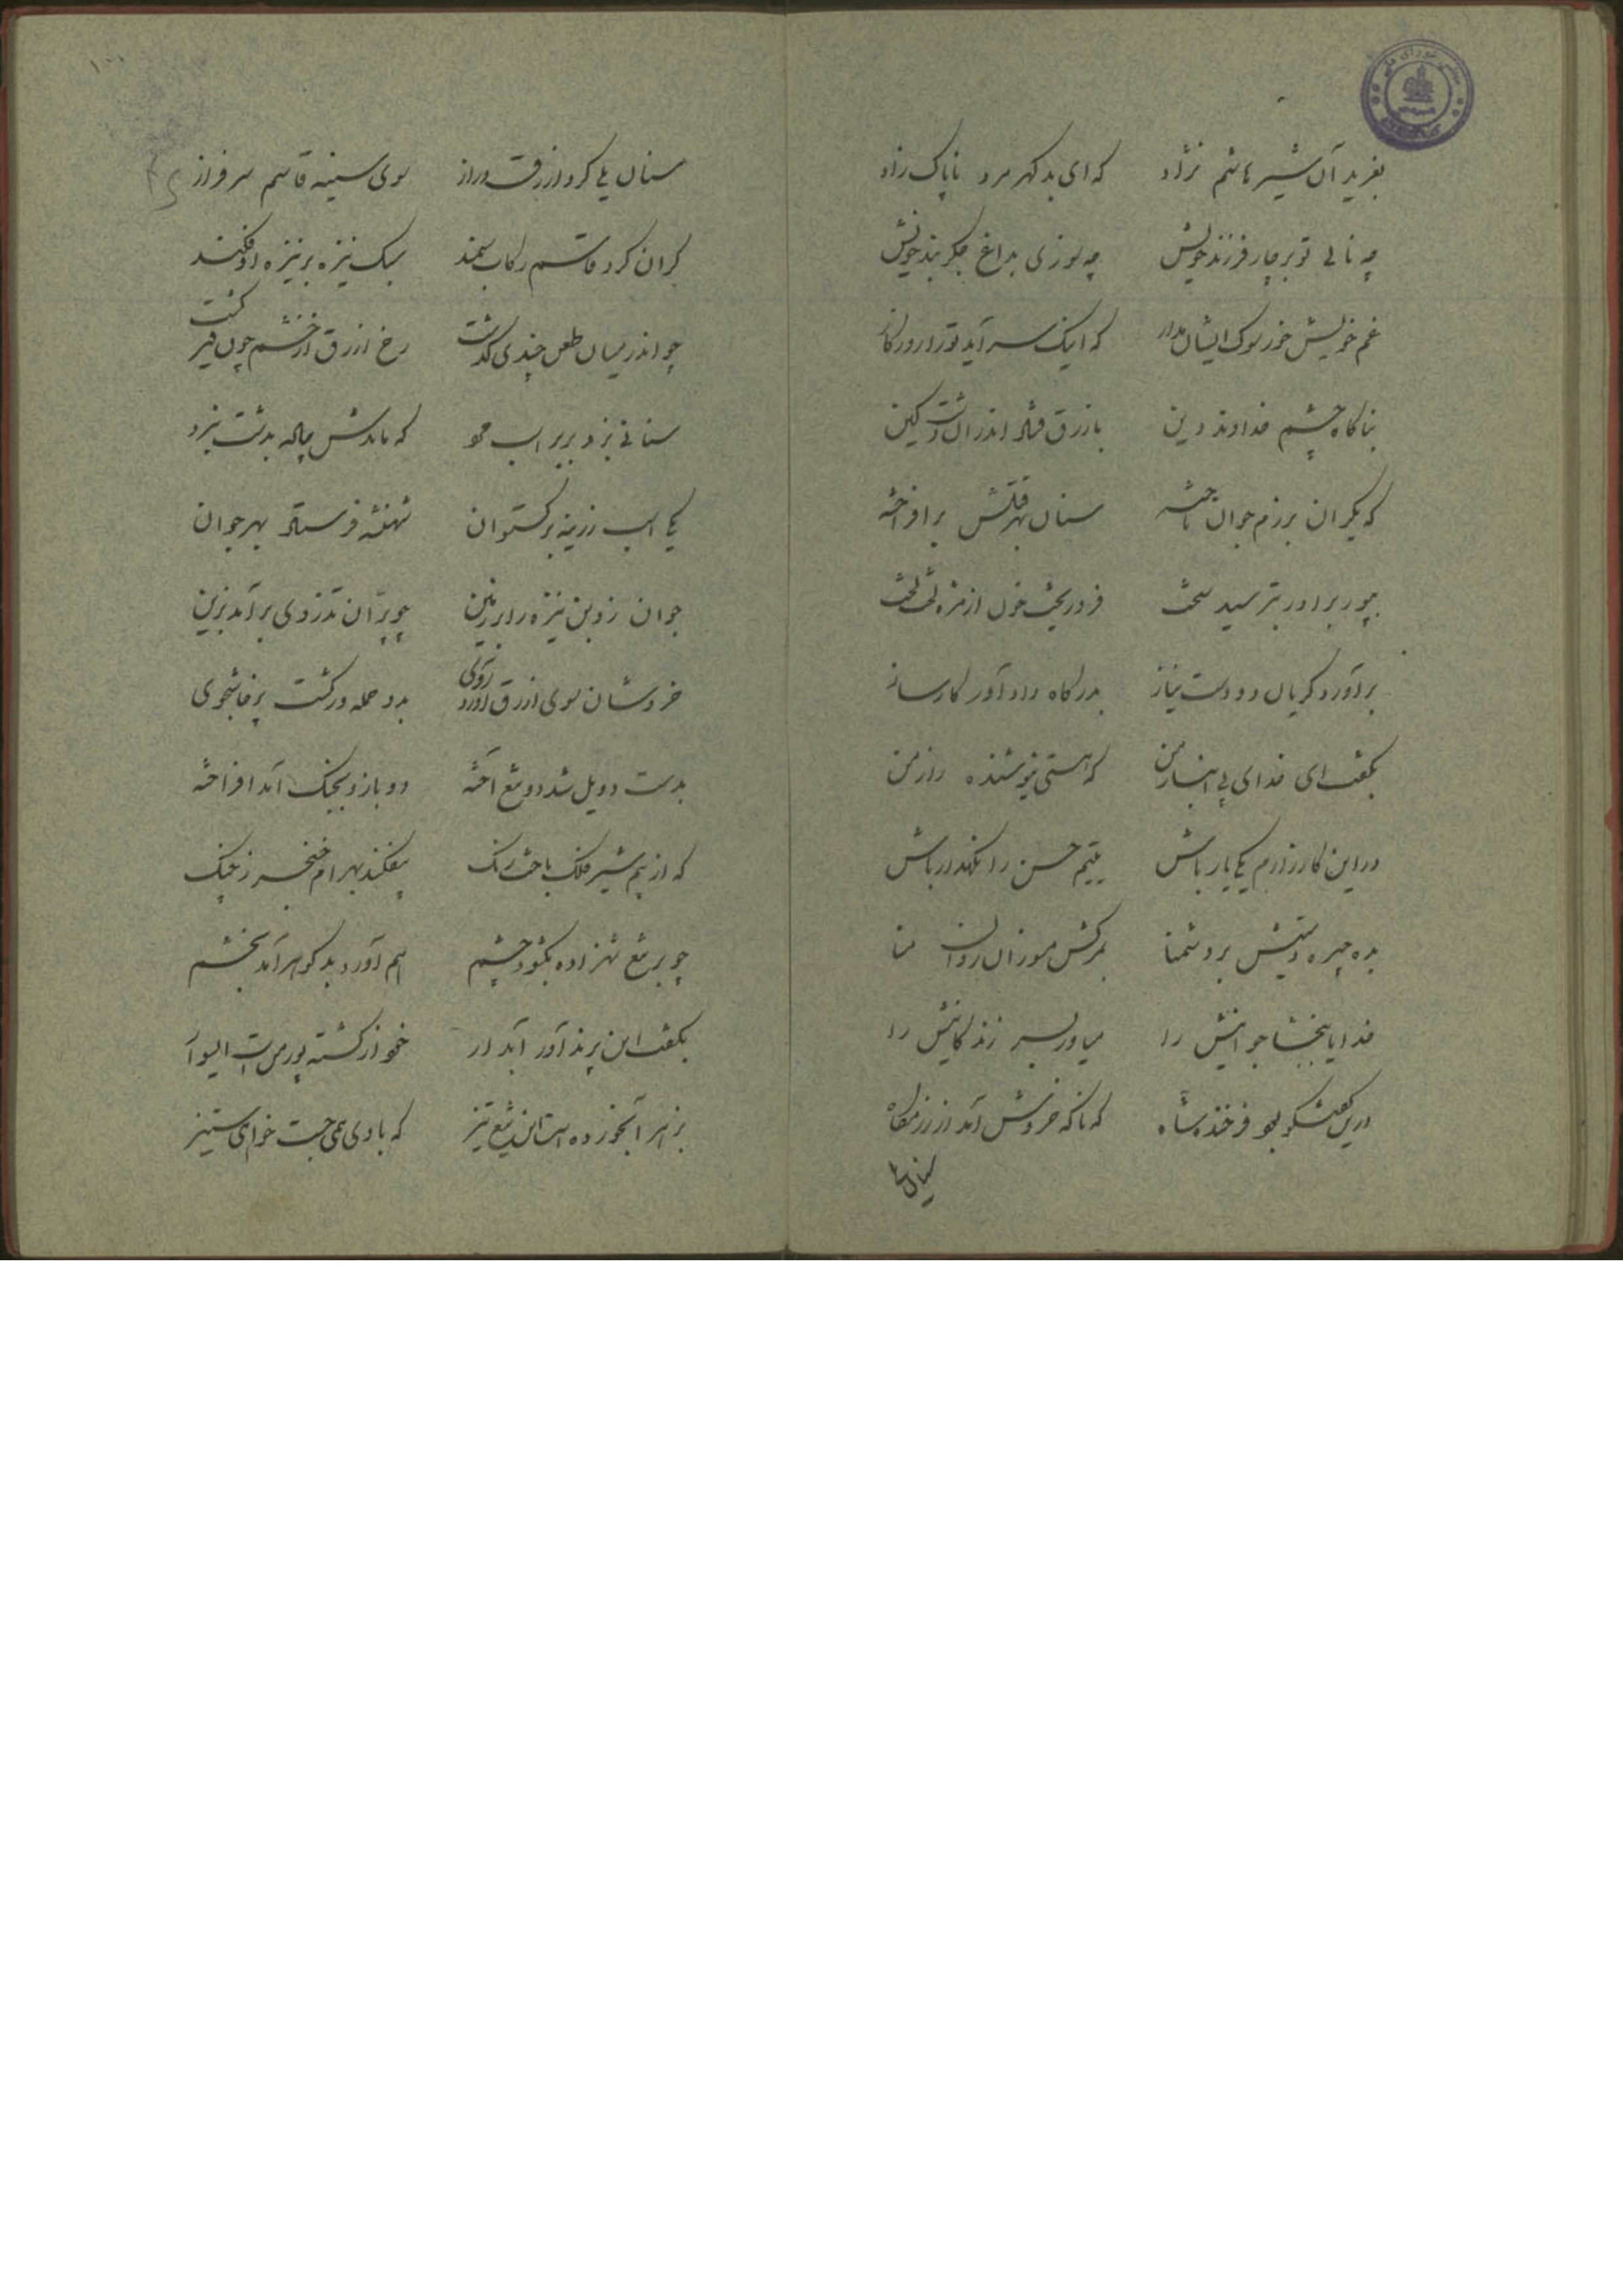 بغرید آن شیر هاشم نژاد که ای بد گهر مرد ناپاک زاد
چه نالی تو بر چار فرزند خویش چه سوزی بداغ جگر بند خویش
غم خویش خور سوک ایشان مدار که اینک سر آید تو را روزگار
بناگاه چشم خداوند دین بازرق فتاد اندر آن دشت کین
که یکران برزم جوان تاخته سنان بهر قتلش برافراخته
بپور برادر بترسید سخت فرو ریخت خون از مژه لخت لخت
برآورد گریان دو دست نیاز بدرگاه دادآور کارساز
بگفت ای خدای بی انباز من که هستی نیوشنده راز من
در این کارزارم یکی یار باش یتیم حسن را نگهدار باش
بده چیره دستیش بر دشمنا بمرگش مسوزان روان منا
خدایا ببخشا جوانیش را میاور بسر زندگانیش را
درین گفتگو بود فرخنده شاه که ناگه خروش آمد از رزمگاه
سنان
سنان یلی کرد ازرق دراز سوی سینه قاسم سرفراز
گران کرد قاسم رکاب سمند سبک نیزه بر نیزه او فکند
چو اندر میان طعن چندی گذشت رخ ازرق از خشم چون قیر گشت
سنانی بزد بر بر اسب که ماندش پیاده بدشت نبرد
یکی اسب زرینه برگستوان شهنشه فرستاد بهر جوان
جوان زد بن نیزه را بر زمین چو پران تذروی برآمد بزین
خروشان سوی ازرق آورد روی بدو حمله ور گشت پرخاشجوی
بدست دو یل شد دو تیغ آخته دو بازو بجنگ آمد افراخته
که از بیم شیر فلک باخت رنگ بیفکند بهرام خنجر ز چنگ
چو بر تیغ شهزاده بگشود چشم هم آورد بد گوهر آمد بخشم
بگفت این پرندآور آبدار خود از کشته پور من است
بزهر آبخورده است این تیغ تیز که با وی همی جست خواهی ستیز
۱۰۰